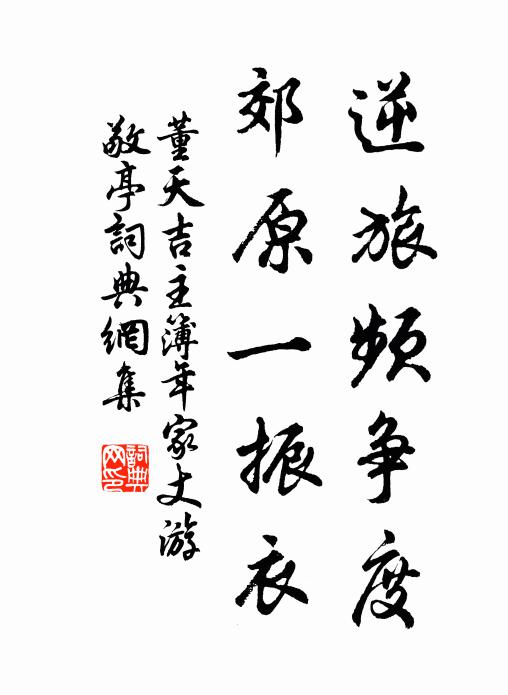 逆旅頻爭度
郊原一振衣
董天吉主簿年家丈游
敬亭詞典網集
詞典网印